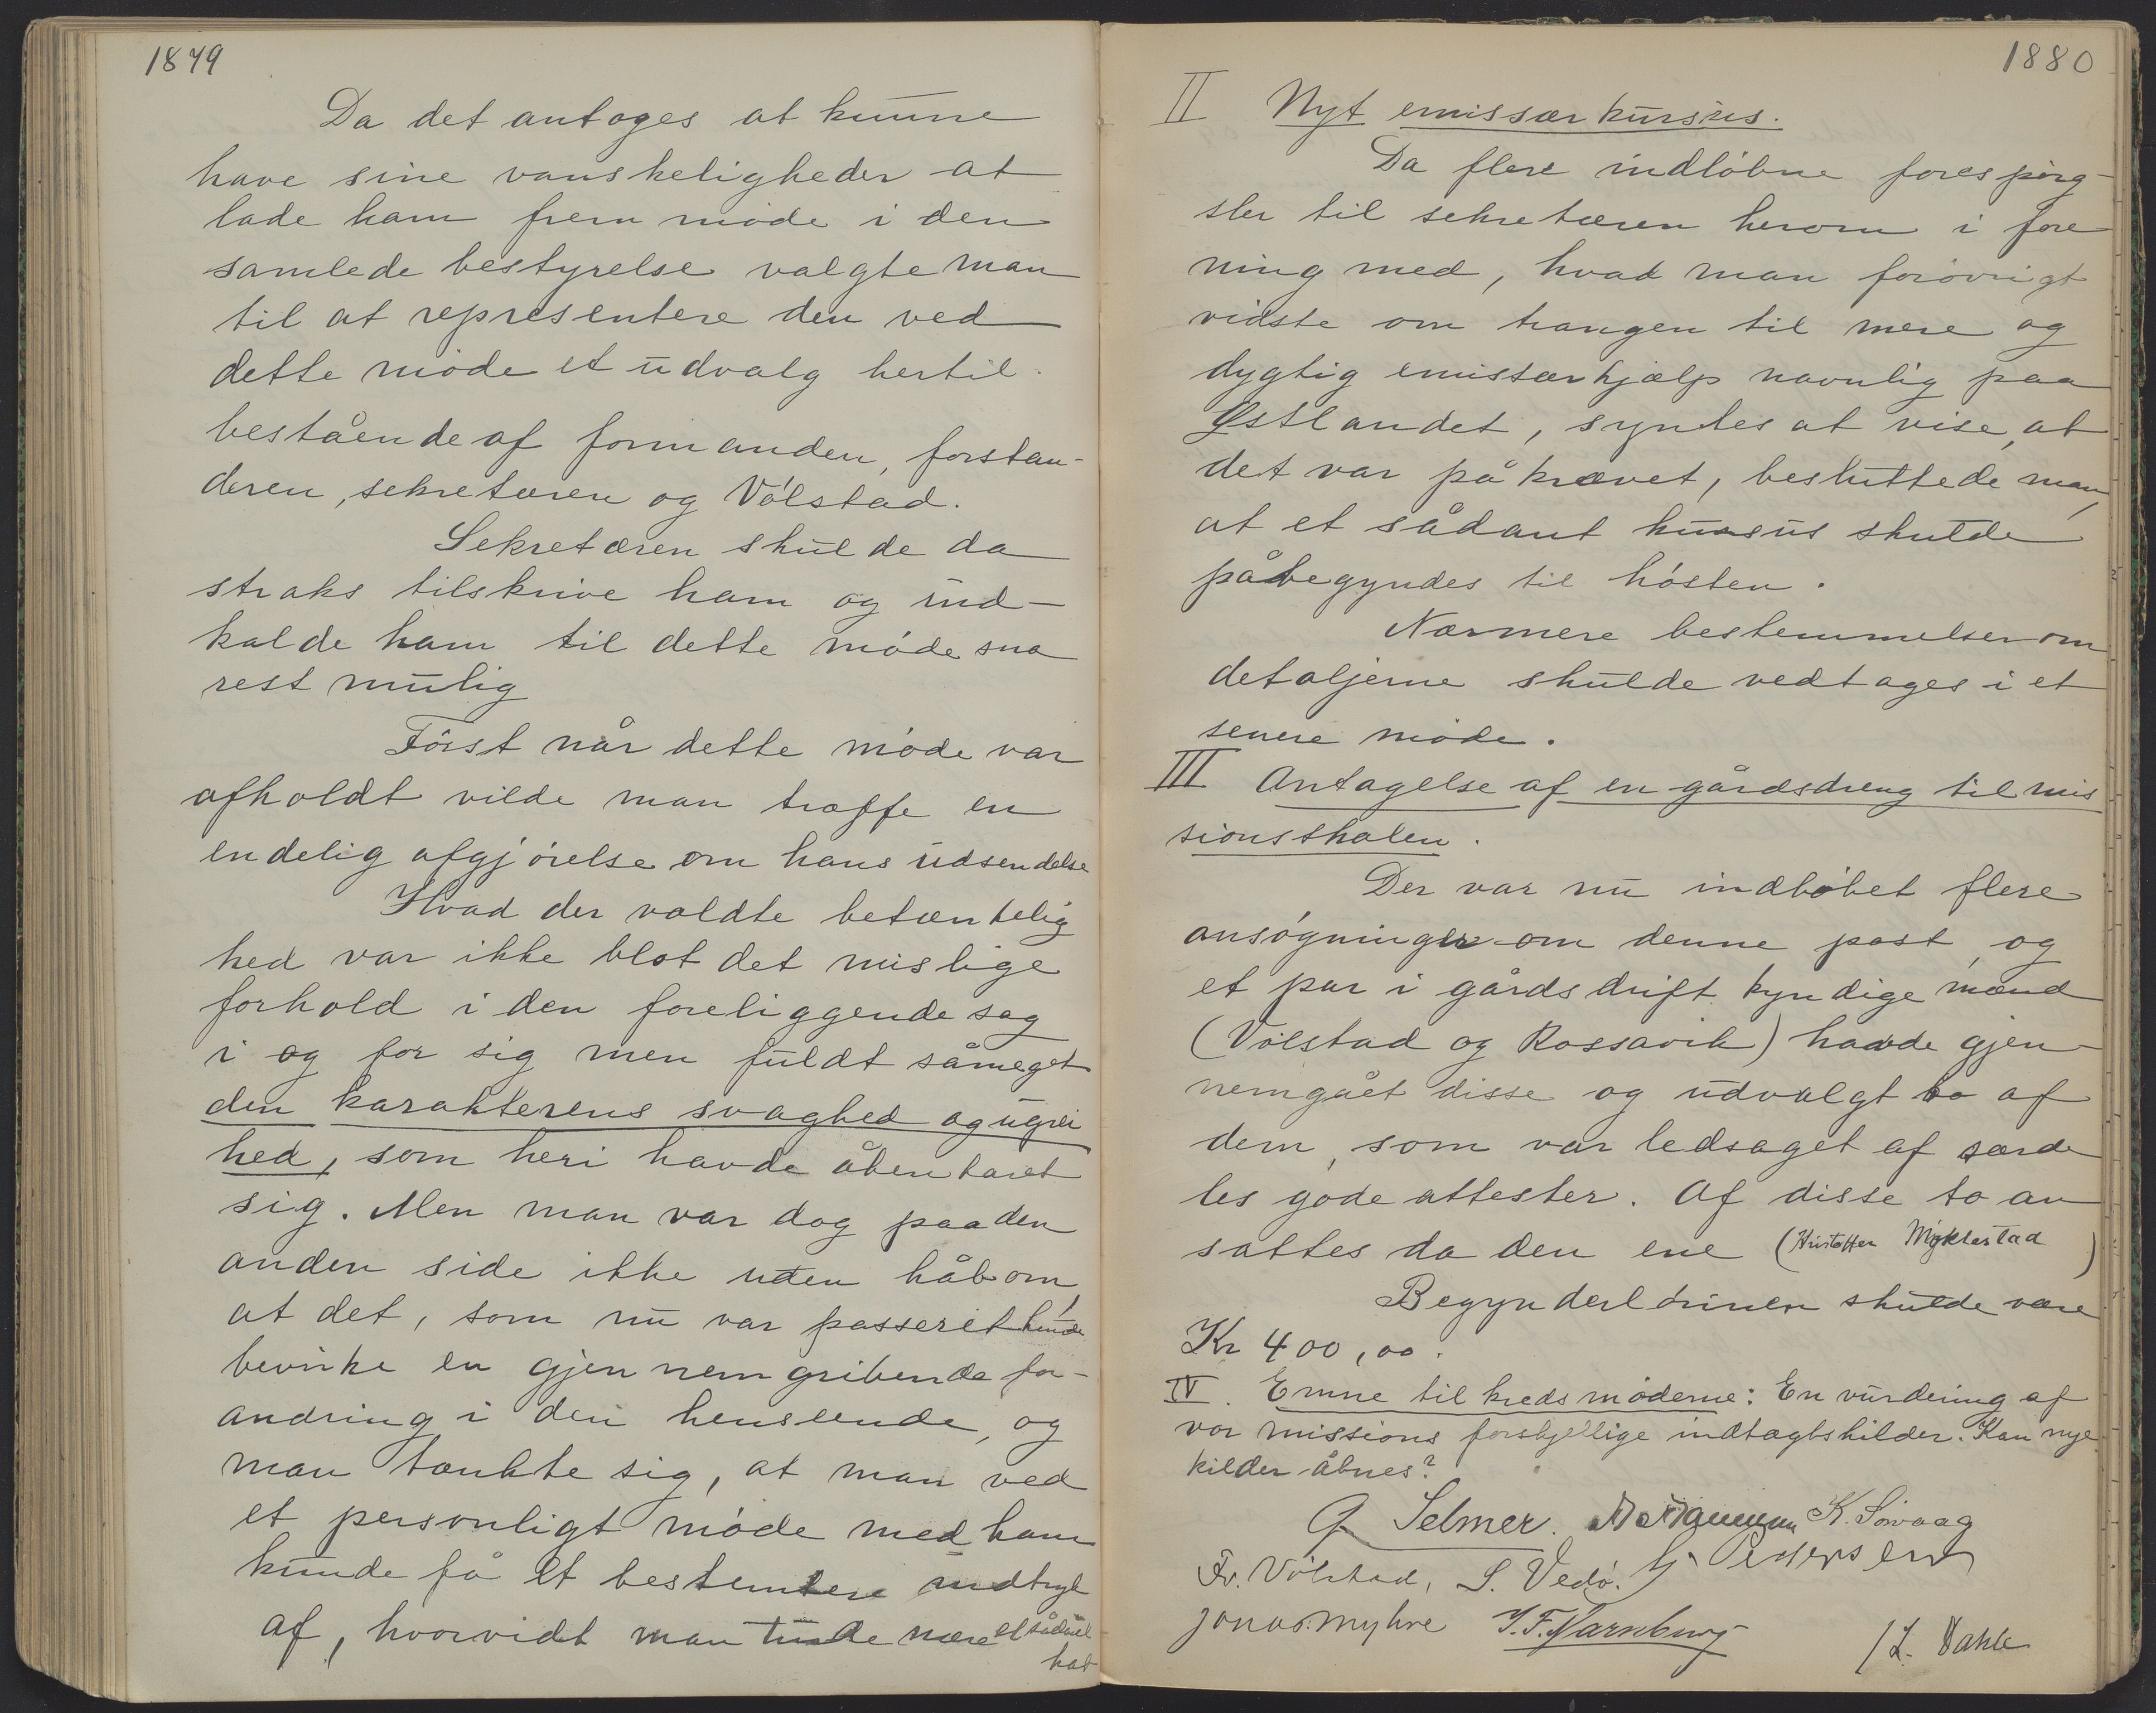 1879
Da det antoges at kunne
have sine vanskeligheder at
lade ham fremmøde i den
samlede bestyrelse valgte man
til at representere den ved
dette møde et udvalg hertil
bestående af formanden, forstan-
deren, sekretæren og Vølstad.
Sekretæren skulde da
straks tilskrive ham og ind-
kalde ham til dette møde sna
rest mulig
Først når dette møde var
afholdt vilde man træffe en
endelig afgjørelse om hans udsendelse
Hvad der voldte betænkelig
hed var ikke blot det mislige
forhold i den foreliggende sag
i og for sig men fuldt såmeget
den karakterens svaghed og ugrei
hed, som heri havde åbenbaret
sig. Men man var dog paa den
anden side ikke uden håb om,
at det, som nu var passeret kunde
bevirke en gjennemgribende for-
andring i den henseende, og
man tænkte sig, at man ved
et personligt møde med ham
kunde få et bestemtere indtryk
af, hvorvidt man turde nære et sådant
håb
1880
II Nyt emissærkursus.
Da flere indløbne forespørg-
sler til sekretæren herom i fore
ning med, hvad man forøvrigt
vidste om trangen til mere og
dygtig emissærhjælp navnlig paa
Østlandet, syntes at vise, at
det var påkrævet, besluttede man,
at et sådant kursus skulde
påbegyndes til høsten.
Nærmere bestemmelser om
detaljerne skulde vedtages i et
senere møde.
III Antagelse af en gårdsdreng til mis
sionsskolen.
Der var nu indløbet flere
ansøgninger om denne post, og
et par i gårdsdrift kyndige mænd
(Vølstad og Rossavik) havde gjen-
nemgået disse og udvalgt to af
dem, som var ledsaget af særde
les gode attester. Af disse to an
sattes da den ene (Kristoffer Myklestad)
Begynderlønnen skulde være
Kr 400,00.
IV. Emne til kredsmøderne: En vurdering af
vor missions forskjellige indtægtskilder. Kan nye
kilder åbnes?
G Selmer. K. Sørvaag
Fr. Vølstad, S. Vedø. G Pedersen
Jonas. Myhre
/L. Dahle